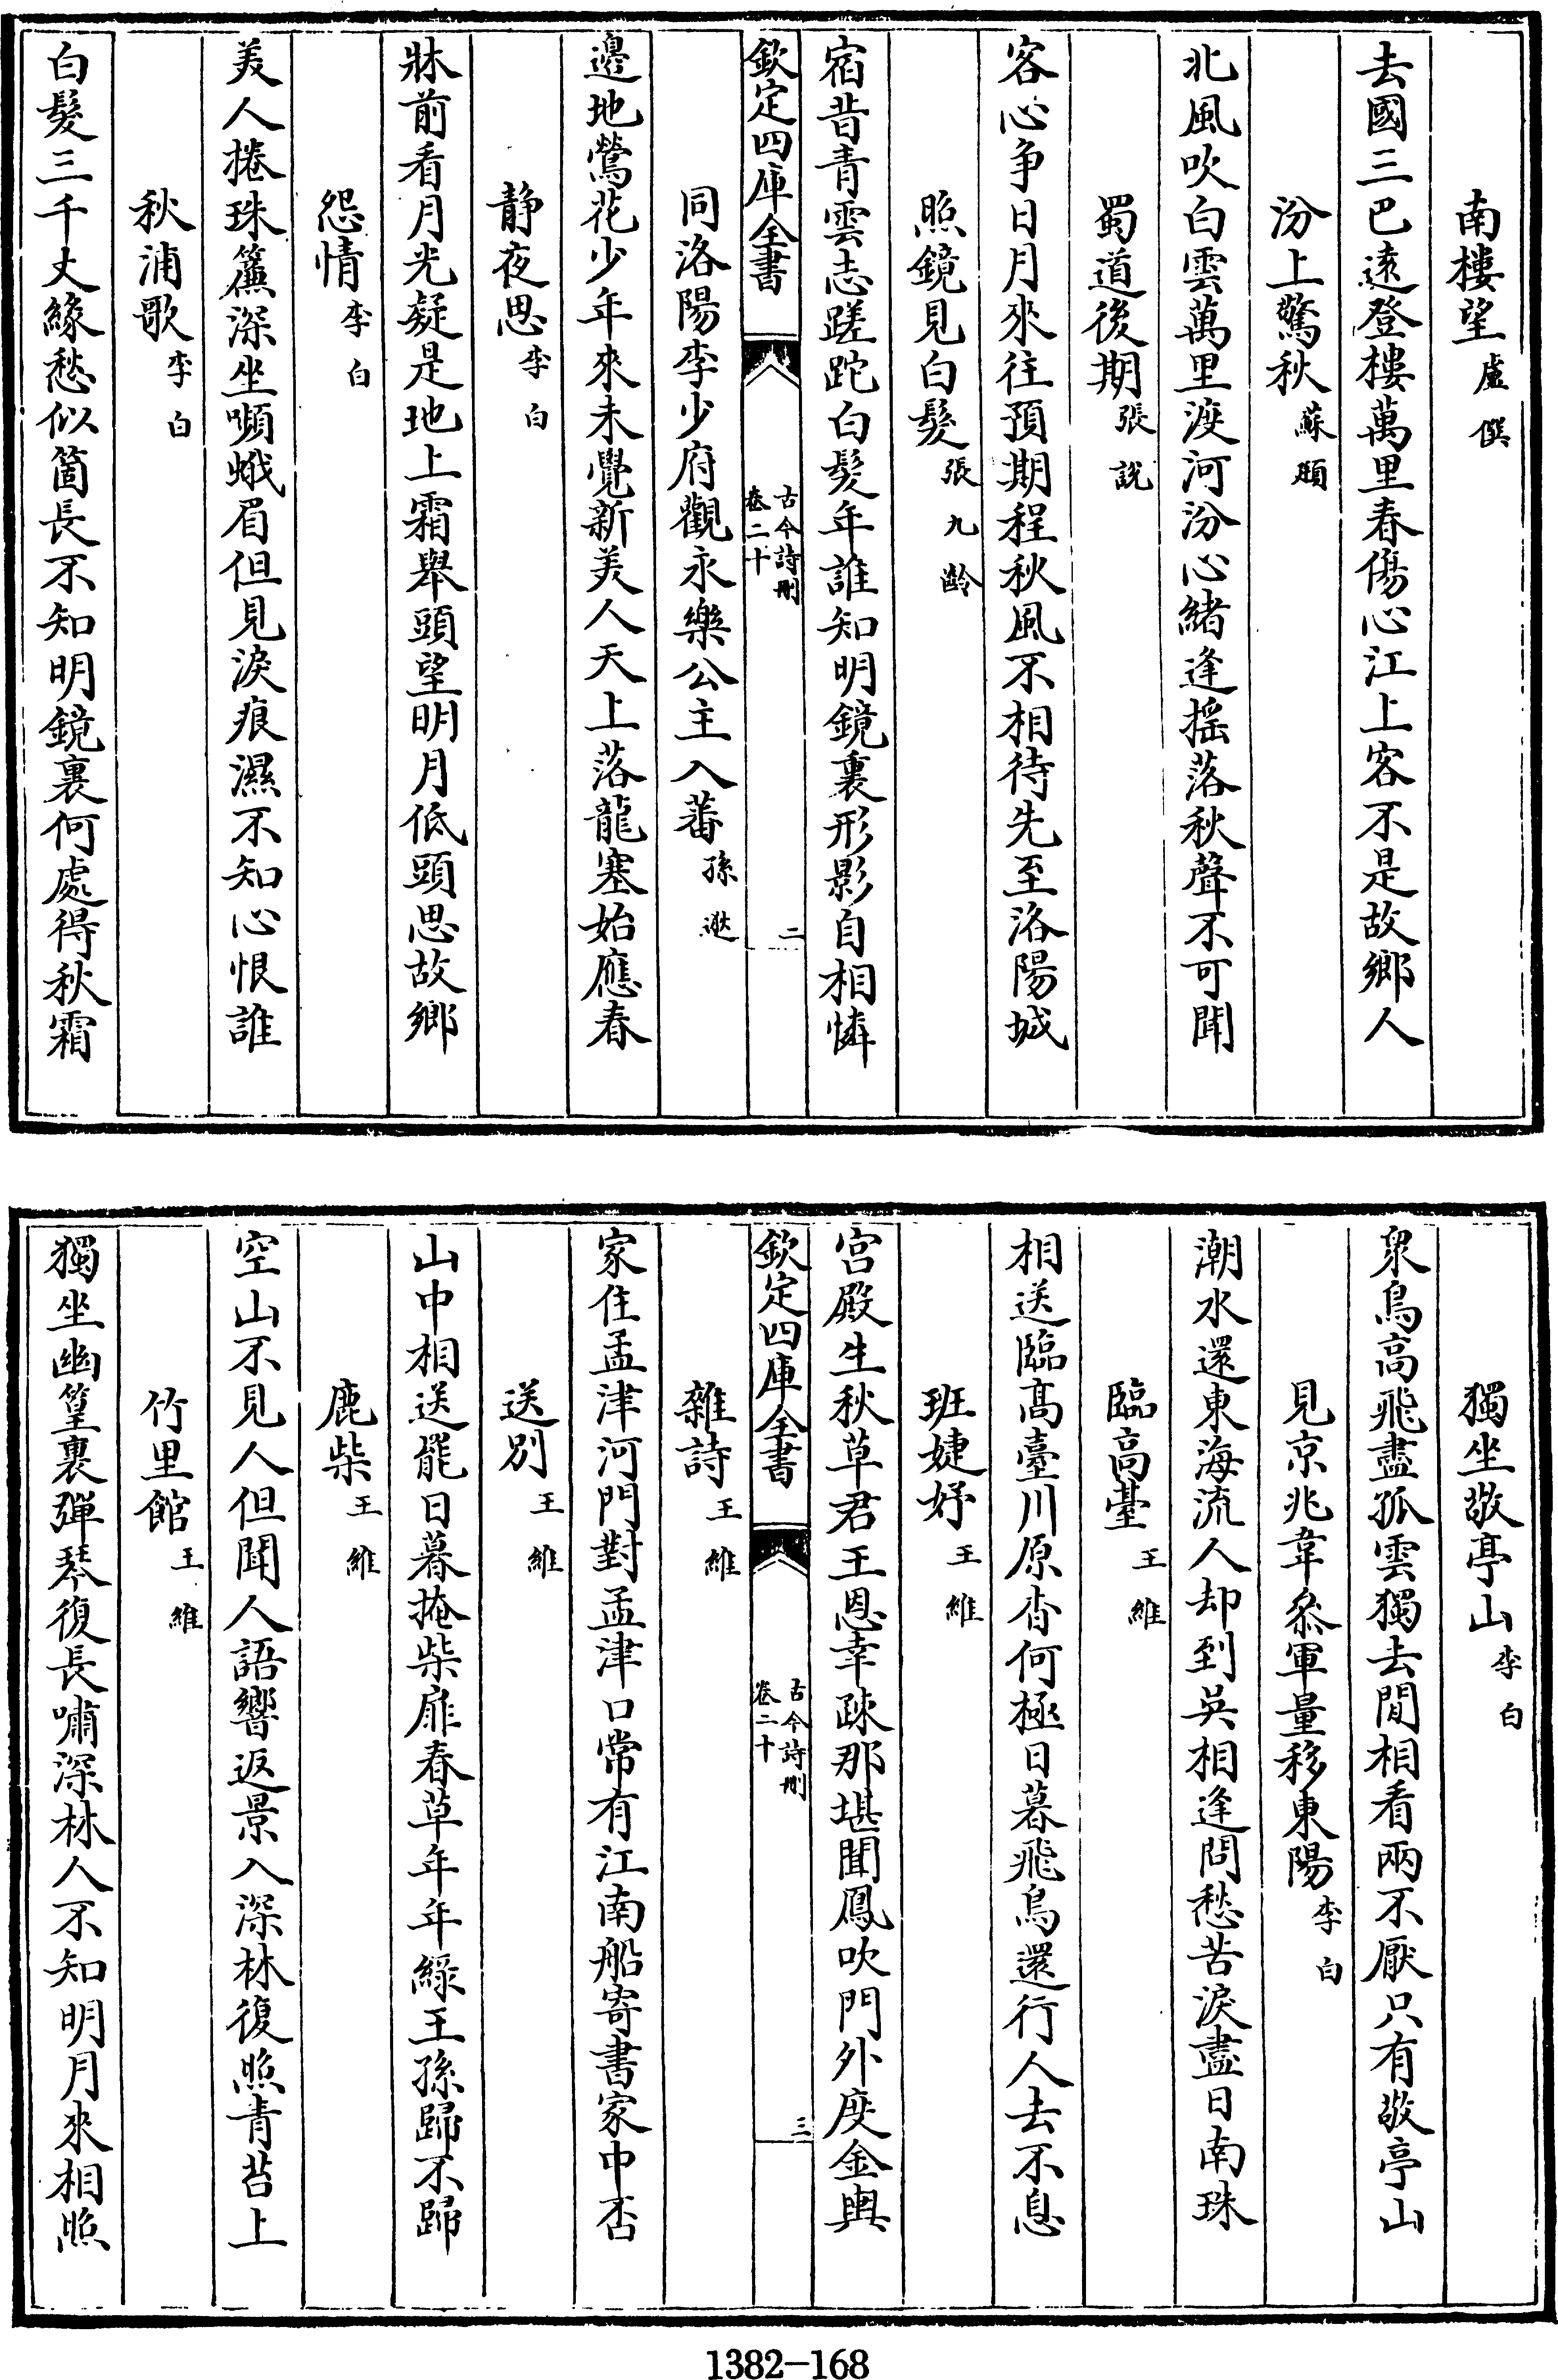 南樓望盧僎
去國三巴遠登樓萬里春傷心江上客不是故鄉人
汾上驚秋蘇頲
北風吹白雲萬里渡河汾心緒逢摇落秋聲不可聞
蜀道後期張說
客心争日月來往預期程秋風不相待先至洛陽城
照鏡見白髮張九齡
宿昔青雲志蹉跎白髮年誰知明鏡裏形影自相憐
欽定四庫全書
古今詩刪
卷二十
二
同洛陽李少府觀永樂公主入蕃孫逖
邊地鶯花少年來未覺新美人天上落龍塞始應春
静夜思李白
牀前看月光疑是地上霜舉頭望明月低頭思故鄉
怨情李白
美人捲珠簾深坐嚬蛾眉但見淚痕濕不知心恨誰
秋浦歌李白
白髮三千丈緣愁似箇長不知明鏡裏何處得秋霜
獨坐敬亭山李白
衆鳥高飛盡孤雲獨去閒相看兩不厭只有敬亭山
見京兆韋叅軍量移東陽李白
潮水還東海流人却到吳相逢問愁苦淚盡日南珠
臨高臺王維
相送臨高臺川原杳何極日暮飛鳥還行人去不息
班婕妤王維
宫殿生秋草君王恩幸疎那堪聞鳳吹門外度金輿
欽定四庫全書
古今詩刪
卷二十
三
雜詩王維
家住孟津河門對孟津口常有江南船寄書家中否
送别王維
山中相送罷日暮掩柴扉春草年年綠王孫歸不歸
鹿柴王維
空山不見人但聞人語響返景入深林復照青苔上
竹里館王維
獨坐幽篁裏彈琴復長嘯深林人不知明月來相照
1382-168